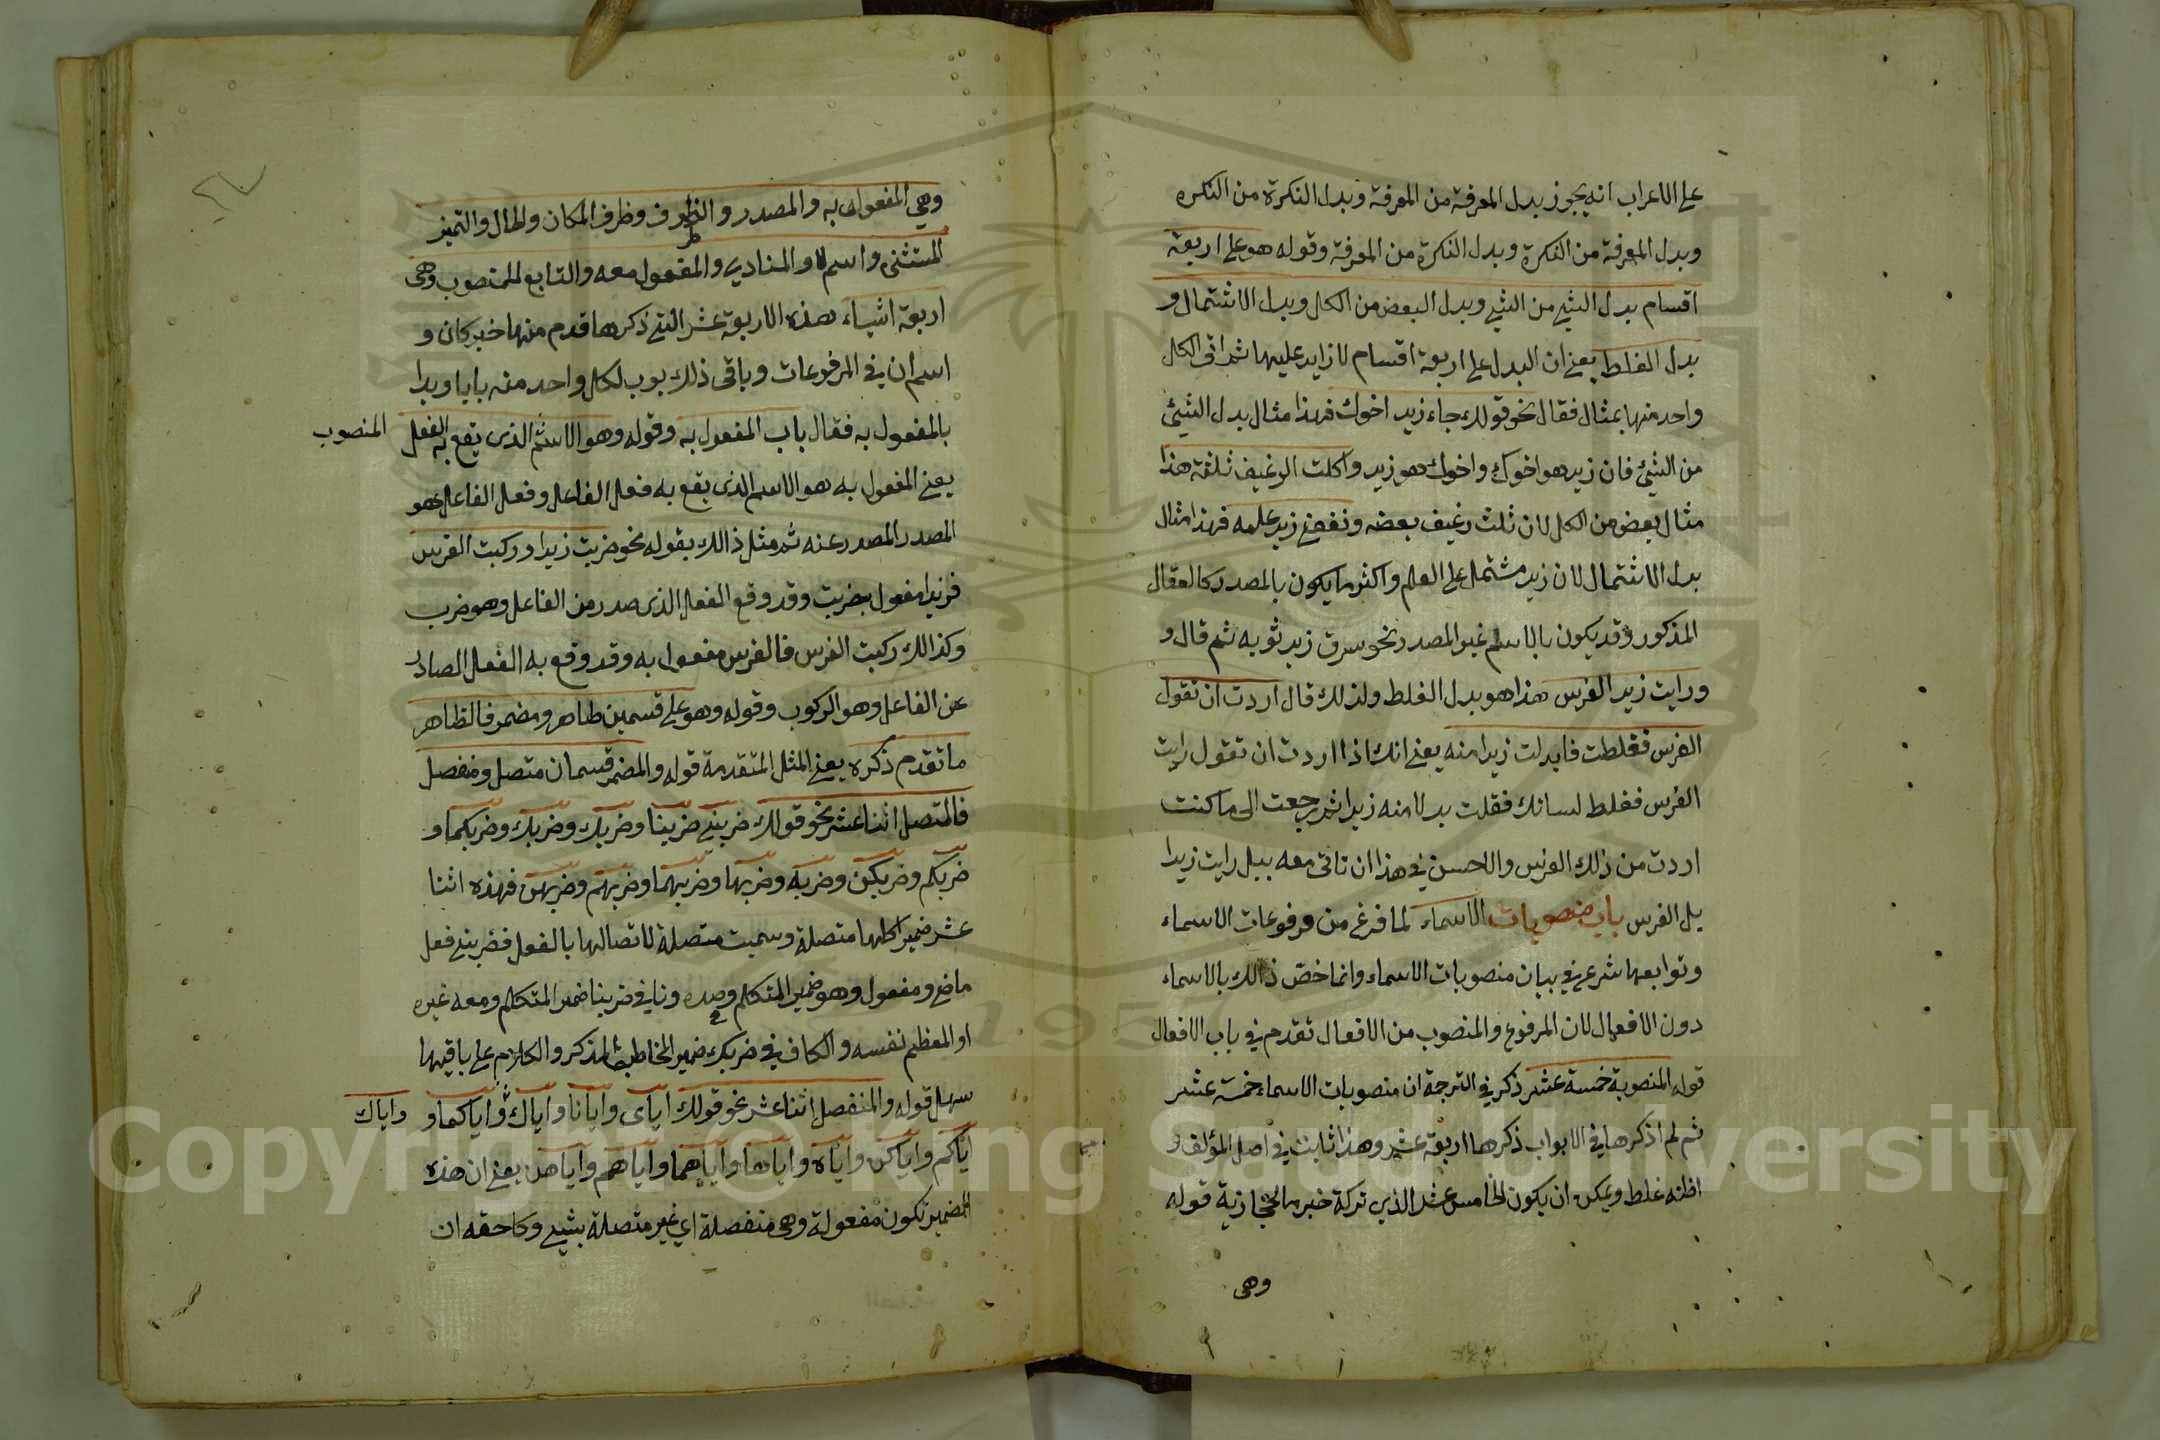 على الاعراب انه يجوز بدل المعرفة من المعرفة وبدل النكرة من النكره
وبدل المعرفة من النكرة وبدل النكرة من المعرفة وقوله هو على اربعة
اقسام بدل الشي من الشي وبدل البعض من الكل وبدل الاشتمال و
بدل الغلط يعني ان البدل على اربعة اقسام لا زايد عليها ثم اتى الكل
واحد منها بمثال فقال نحو قولك جاء زيد اخوك فهذا مثال بدل الشيئ
من الشيئ فان زيد هو اخوك واخوك هو زيد واكلت الرغيف ثلثه هذا
مثال بعض من الكل لان ثلث رغيف بعضه ونفعني زيد علمه فهذا مثال
بدل الاشتمال لان زيد مشتمل على العلم واكثر ما يكون بالمصدر كالعقال
المذكور وقد يكون بالاسم غير المصدر نحو سرق زيد ثوبه ثم قال و
ورايت زيد الفرس هذا هو بدل الغلط ولذلك قال اردت ان تقول
الفرس فغلطت فابدلت زيدا منه يعني انك اذا اردت ان تقول رايت
الفرس فغلط لسانك فقلت بدلا منه زيدا ثم رجعت الى ما كنت
اردت من ذلك الفرس والاحسن في هذا ان تاتي معه ببل رايت زيدا
بل الفرس باب منصوبات الاسماء لما فرغ من مرفوعات الاسماء
وتوابعها شرع في بيان منصوبات الاسماء وانما خص ذالك بالاسماء
دون الافعال لان المرفوع والمنصوب من الافعال تقدم في باب الافعال
قوله المنصوبة خمسة عشر ذكر في الترجمة ان منصوبات الاسماء خمسة عشر
ثم لم اذكرها في الابواب ذكرها اربعة عشر وهذا ثابت في اصل المؤلف و
اظنه غلط ويمكن ان يكون الخامس عشر الذي تركه خبر ما الحجازية قوله
وهى
وهي المفعول به والمصدر والظرف وظرف المكان والحال والتميز
المستثنى واسم لا والمنادى والمفعول معه والتابع للمنصوب وهى
اربعة اشياء هذه الاربعة عشر التي ذكرها قدم منها خبر كان و
اسم ان في المرفوعات وباقى ذلك بوب لكل واحد منه بابا وبدا
بالمفعول به فقال باب المفعول به وقوله وهو الاسم الذى يقع به الفعل
المنصوب
يعني المفعول به هو الاسم الذى يقع به فعل الفاعل وفعل الفاعل هو
المصدر المصدر عنه ثم مثل ذالك بقوله نحو ضربت زيدا وركبت الفرس
فزيدا مفعول بضربت وقد وقع الفعل الذى صدر من الفاعل وهو ضرب
وكذالك ركبت الفرس فالفرس مفعول به وقد وقع به الفعل الصادر
عن الفاعل وهو الركوب وقوله وهو على قسمين ظاهر ومضمر فالظاهر
ما تقدم ذكره يعني المثل المتقدمة قوله والمضمر قسمان متصل ومنفصل
فالمتصل اثنا عشر نحو قولك ضربني ضربنا وضربك وضربك وضربكما و
ضربكم وضربكن وضربه وضربها وضربهما وضربهم وضربهن فهذه اثنا
عشر ضميرا كلها متصلة وسميت متصلة لاتصالها بالفعل فضربني فعل
ماض ومفعول وهو ضمير المتكلم وحده ونا في ضربنا ضمير المتكلم ومعه غيره
او المعظم نفسه والكاف في ضربك ضمير المخاطب المذكر والكلام على باقيها
سهل قوله والمنفصل اثنا عشر نحو قولك اياى وايانا واياك واياكما و
واياك
اياكم واياكن واياه واياها واياهما واياهم واياهن يعني ان هذه
المضمير تكون مفعولة وهى منفصلة اي غير متصلة بشيء وكا حقه ان
Copyright © King Saud University